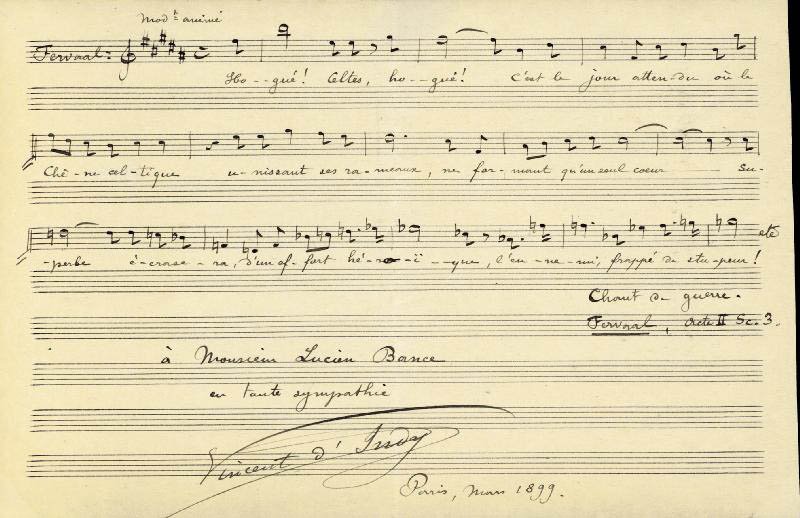 Mod.t animé
Fervaal:
Ho--gué! Celtes, ho--gué! C'est le jour atten-du où le
Chê-ne cel-tique u-nissant ses ra-meaux, ne for-mant qu'un seul coeur su-
-perbe é-crase-ra, d'un ef-fort hé-ro-ï--que, l'en-ne-mi, frappé de stu-peur! etc
Chant de guerre.
Fervaal, Acte II Sc. 3.
à Monsieur Lucien Bance
en toute sympathie
Vincent d'Indy
Paris, Mars 1899.